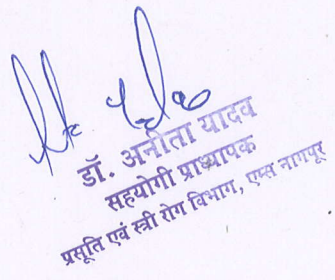 डॉ. अनीता यादव
सहयोगी प्राध्यापक
प्रसूति एवं स्त्री रोग विभाग, एम्स नागपूर